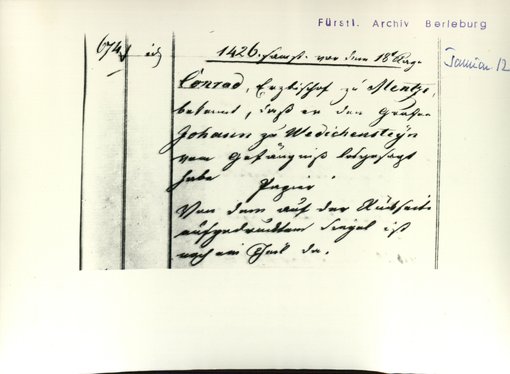 Fürstl. Archiv Berleburg
674 id
1426. Samst. vor dem 18t Tag.
Januar 12
Conrad, Erzbischof zu Mentze,
bekennt, daß er den Grafen
Johann zu Wedichensteyn
vom Gefängniß losgesagt
habe Papier
Von dem auf der Rückseite
aufgedruckten Siegel ist
noch ein Theil da.